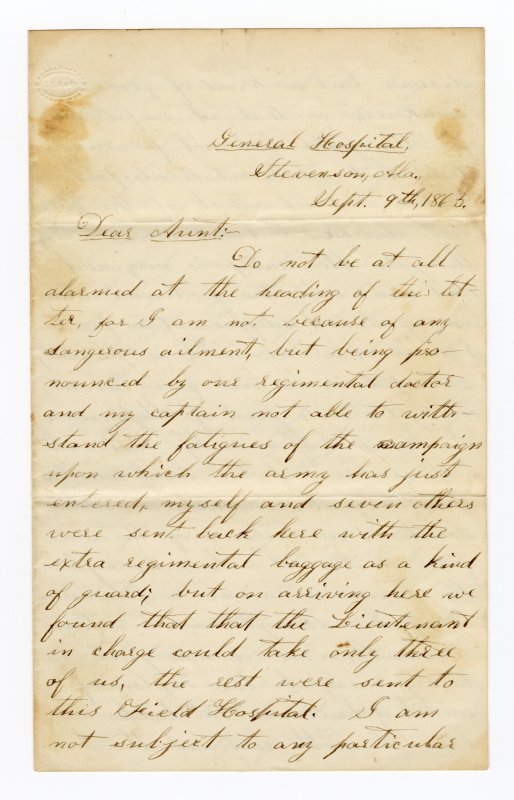 General Hospital,
Stevenson, Ala.,
Sept. 9th, 1863.
Dear Aunt:-
Do not be at all
alarmed at the heading of this let-
ter, for I am not because of any
dangerous ailment, but being pro-
nounced by our regimental doctor
and my captain not able to with-
stand the fatigues of the campaign
upon which the army has just
entered, myself and seven others
were sent back here with the
extra regimental baggage as a kind
of guard; but on arriving here we
found that that the Lieutenant
in charge could take only three
of us, the rest were sent to
this Field Hospital. I am
not subject to any particular